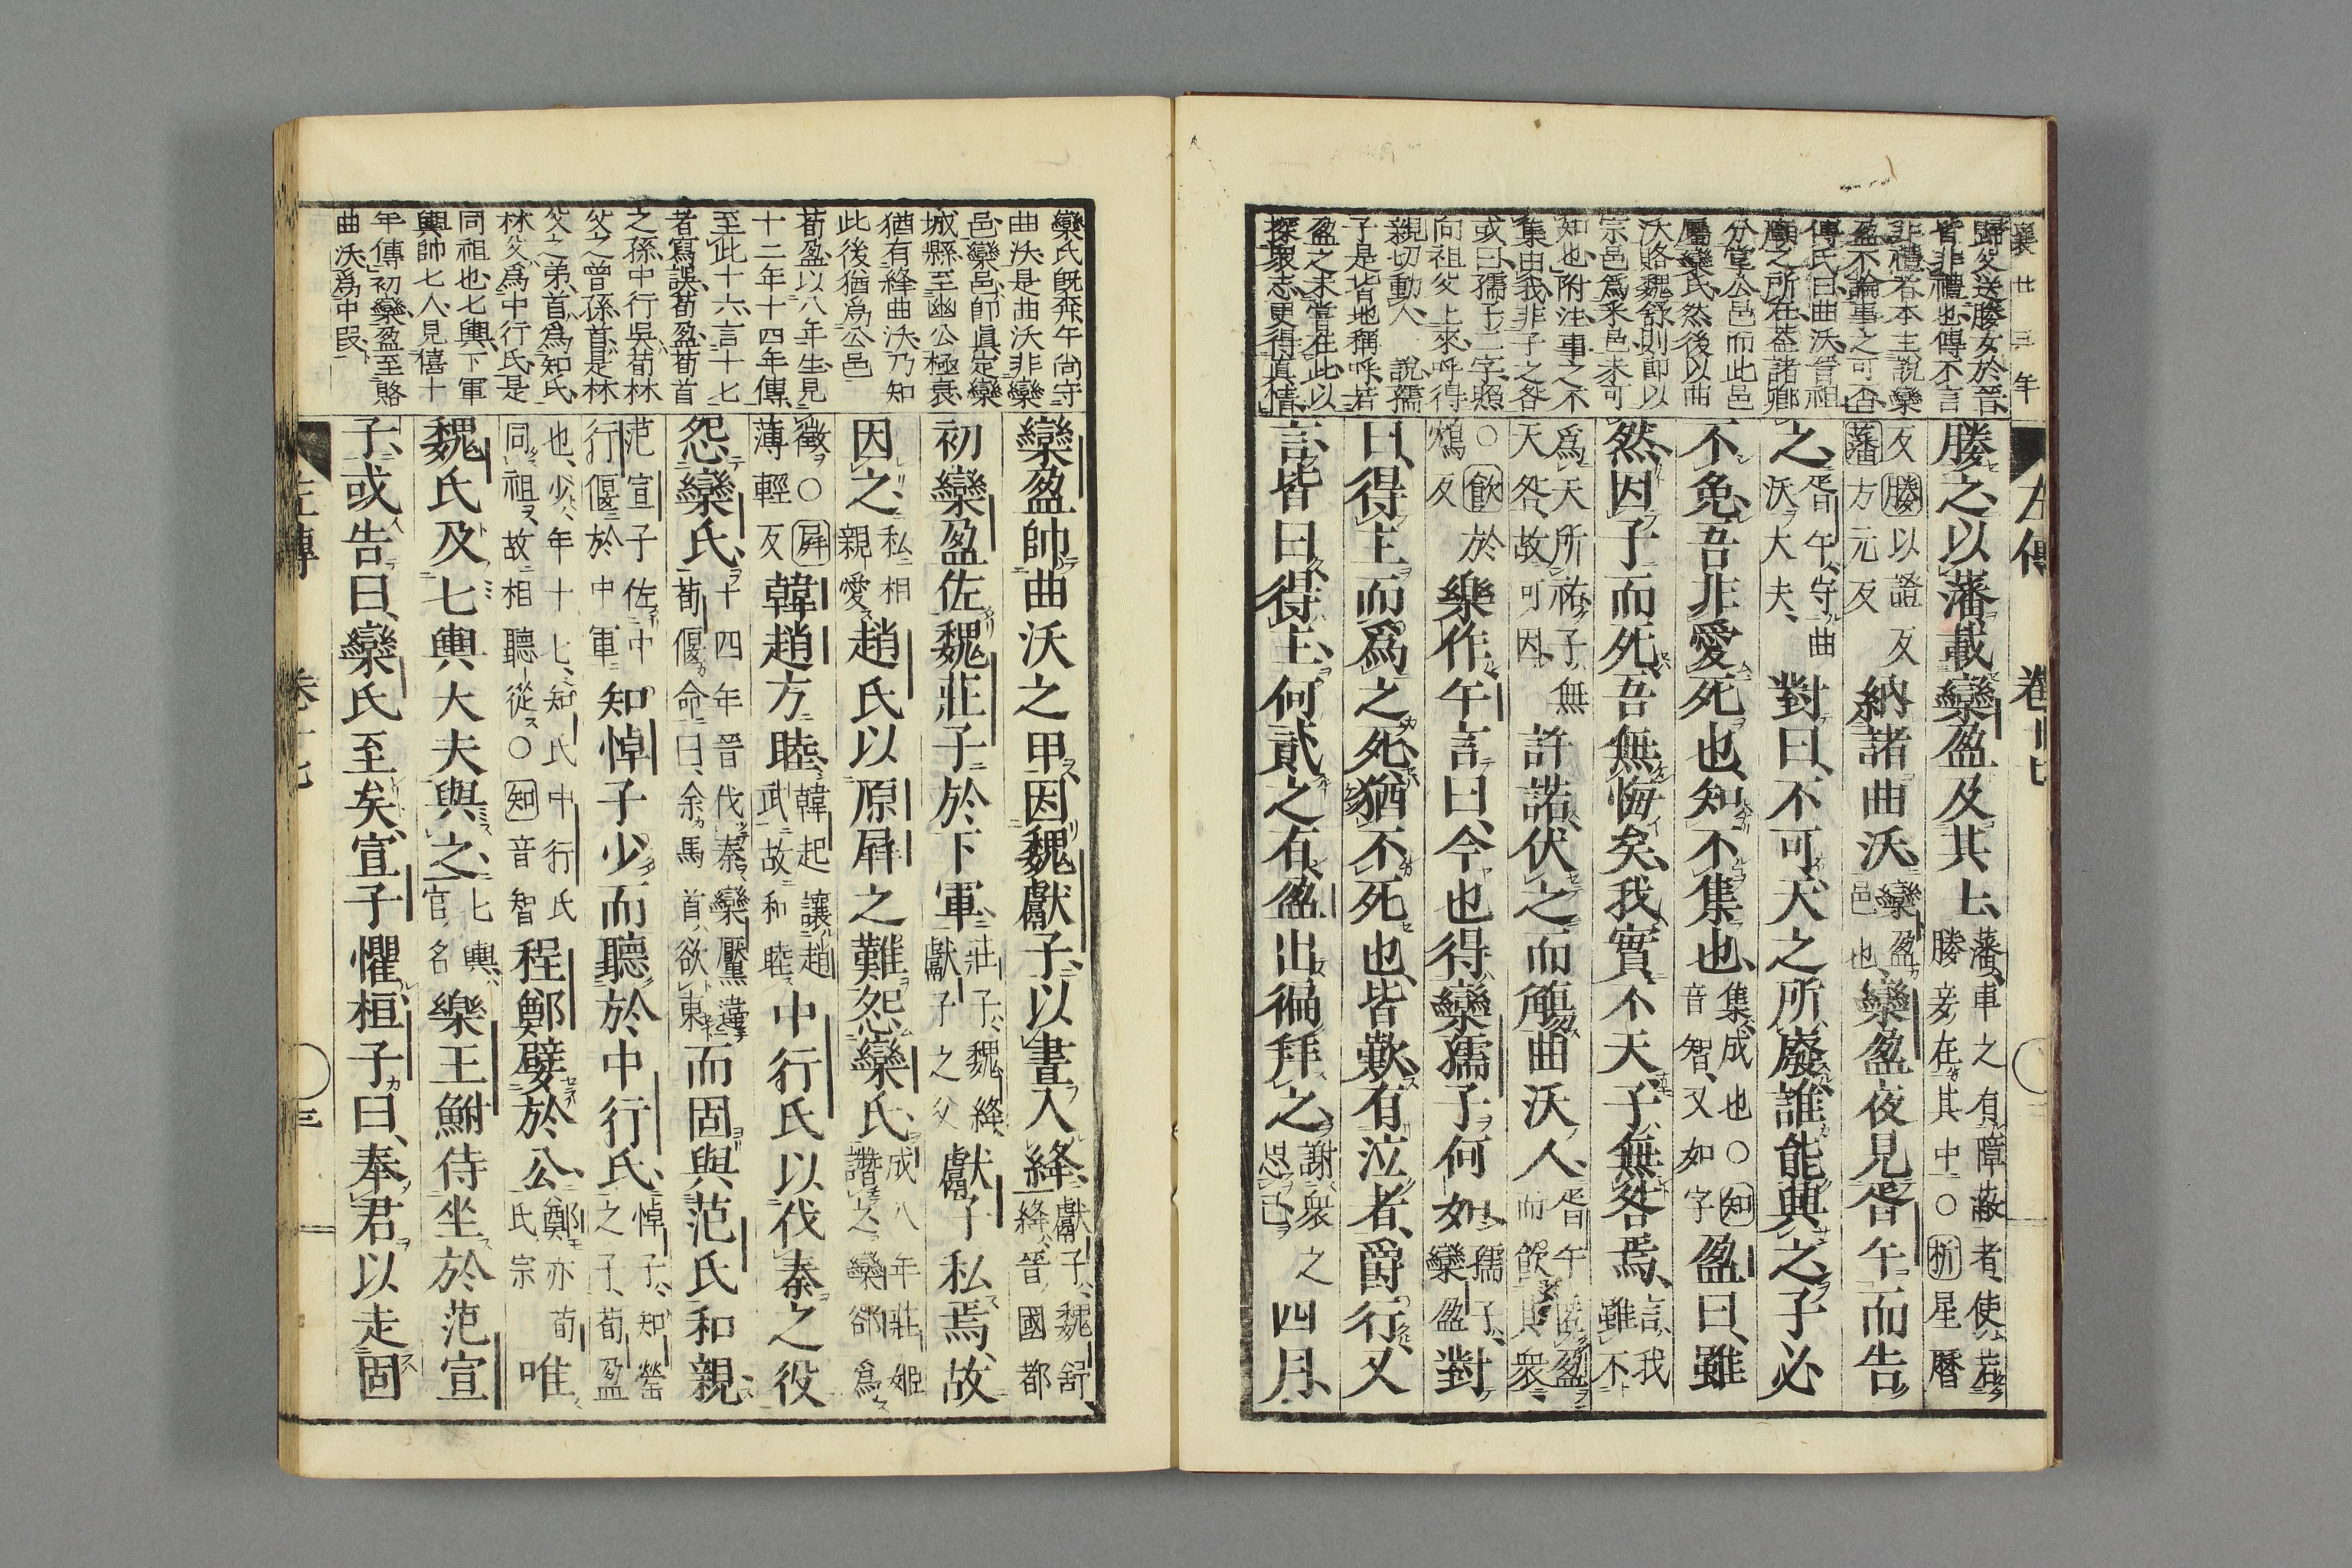 襄廿三年
歸父送媵女於晉
皆非禮也傳不言
非禮者本主說欒
盈不論事之可否
傅氏曰曲沃晉祖
廟之所在蓋諸鄉
分掌公邑而此邑
屬欒氏然後以曲
沃賂魏舒則卽以
宗邑爲釆邑未可
知也附注事之不
集由我非子之咎
或曰孺子二字照
向祖父上來呼得
親切動人　說孺
子是皆地稱呼若
盈之未嘗在此以
探衆志更得眞情
左傳　卷十七
媵之以藩載欒盈及其士、藩、車之有障蔽者、使若媵妾在其中○析星曆
反媵以證反藩方元反納諸曲沃、欒盈邑也、欒盈夜見胥午而告
之、胥午、守曲沃大夫、對曰、不可、天之所廢誰能興之子必
不免、吾非愛死也、知不集也、集成也○知音智、又如字盈曰、雖
然、因子而死、吾無悔矣、我實不天、子無咎焉、言我雖不
爲天所祐、子無天咎、故可因許諾、伏之而觴曲沃人、胥午匿盈而飲其衆
○飲於鴆反樂作、午言曰、今也得欒孺子何如、孺子、欒盈對
曰、得主而爲之死、猶不死也、皆歎、有泣者、爵行、又
言、皆曰、得主、何貳之有、盈出徧拜之、謝衆之思己四月、
欒氏旣奔、午尚守
曲沃、是曲沃非欒
邑、欒邑卽眞定欒
城縣、至幽公極衰、
猶有絳曲沃、乃知
此後猶爲公邑
荀盈、以八年生、見
十二年十四年傳、
至此十六、言十七
者寫誤、荀盈荀首
之孫、中行吳荀林
父之曾孫、首是林
父之弟、首爲知氏、
林父爲中行氏、是
同祖也、七輿、下軍
輿帥七人、見僖十
年傳、初欒盈至賂
曲沃、爲中段、
欒盈帥曲沃之甲、因魏獻子、以晝入絳、獻子、魏舒、絳、晉國都
初欒盈佐魏莊子於下軍、莊子、魏絳、獻子之父獻子私焉、故
因之、私相親愛趙氏以原屛之難怨欒氏、成八年莊姬譖之欒郤爲
徵○屛薄輕反韓趙方睦、韓起讓趙武、故和睦中行氏以伐秦之役
怨欒氏、十四年晉伐秦、欒黶違荀偃命曰、余馬首欲東而固與范氏和親、
范宣子佐中行偃於中軍知悼子少而聽於中行氏、悼子、知罃之子、荀盈
也、少、年十七、知氏中行氏同祖、故相聽從○知音智程鄭嬖於公、鄭亦荀氏宗唯
魏氏及七輿大夫與之、七輿、官名樂王鮒侍坐於范宣
子、或告曰、欒氏至矣、宣子懼、桓子曰、奉君以走固
左傳　卷十七　三